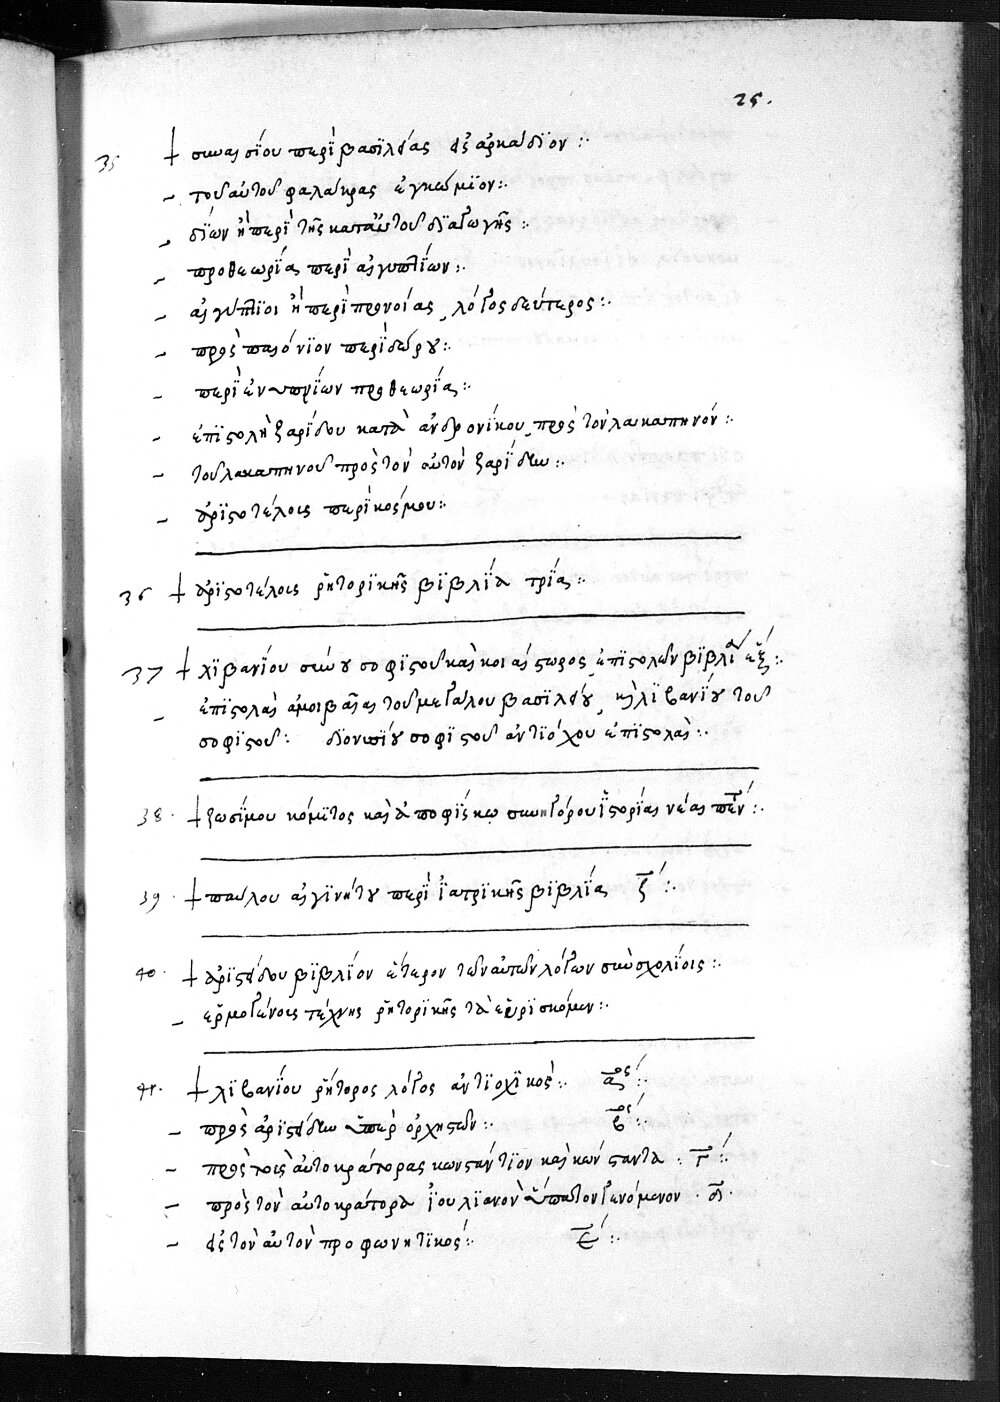 25.
35 ┼ συνεσίου περὶ βασϊλείας εἰς ἀρκάδϊον :·
– τοῦ αὐτοῦ φαλάκρας ἐγκώμϊον :·
– δΐων ἢ περὶ τῆς κατ' αὐτοῦ δϊαγωγῆς :·
– προθεωρία περὶ αἰγυπτίων :·
– αἰγύπτϊοι ἢ περὶ προνοίας, λόγος δεύτερος :·
– πρὸς παιόνϊον περὶ δώρου :·
– περὶ ἐνυπνΐων προθεωρία :·
– ἐπϊστολὴ ζαρίδου κατὰ ἀνδρονίκου, πρὸς τὸν λακαπηνόν :·
– τοῦ λακαπηνοῦ πρὸς τὸν αὐτὸν ζαρίδην :·
– ἀρϊστοτέλους περὶ κόσμου :·
36 ┼ ἀρϊστοτέλους ῥητορϊκῆς βϊβλΐα τρΐα :·
37 ┼ λϊβανΐου σύρου σοφϊστοῦ καὶ κοιαίστωρος, ἐπϊστολῶν βϊβλΐα ἓξ :·
– ἐπϊστολαὶ ἀμοιβαῖαι τοῦ μεγάλου βασϊλείου, καὶ λϊβανΐου τοῦ
σοφϊστοῦ : δϊονυσΐου σοφϊστοῦ ἀντϊόχου ἐπϊστολαὶ :·
38 · ┼ ζωσίμου κόμϊτος καὶ ἀποφίσκου συνηγόρου ἱστορίας νέας πέντε :·
39 · ┼ παύλου αἰγϊνήτου περὶ ἰατρϊκῆς βϊβλΐα ζ̅ :·
40 · ┼ ἀρϊστείδου βϊβλΐον ἕτερον τῶν αὐτῶν λόγων σὺν σχολΐοις :·
– ἑρμογένους τέχνης ῥητορϊκῆς τὰ εὑρϊσκόμενα :·
41 · ┼ λϊβανΐου ῥήτορος λόγος ἀντϊοχϊκός :· α̅ος :·
– πρὸς ἀρϊστείδην ὑπὲρ ὀρχηστῶν :· β̅ος :·
– πρὸς τοὺς αὐτοκράτορας κωνστάντϊον καὶ κώνσταντα · γ̅ :·
– πρὸς τὸν αὐτοκράτορα ἰουλϊανὸν ὕπατον γενόμενον · δ̅ ·
– εἰς τὸν αὐτὸν προσφωνητϊκός :· ε̅ :·